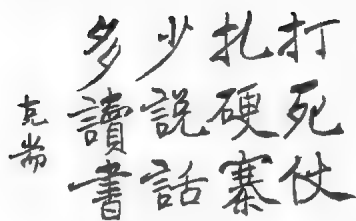 打死仗
扎硬寨
少説話
多讀書
克耑